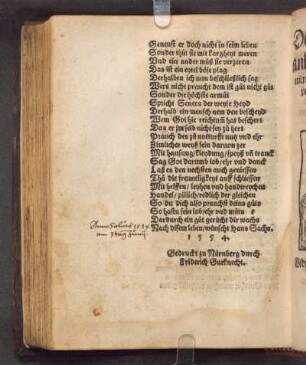 Geneust er doch nicht in seim leben
Sonder thut sie mit kargheyt meren
Vnd ein ander muß sie verzeren
Das ist ein eytel böse plag
Derhalben ich nun beschließlich sag
Wers nicht praucht dem ist gůt nicht gůt
Sonder die höchste armůt
Spricht Seneca der weyse Heyd
Derhalb ein mensch nem den bescheyd
Wem Got hie reichtumb hat beschert
Das er jm selb nicht sey zu hert
Prauch des zů notturfft nutz vnd ehr
Zimlicher weyß sein darunn zer
Mit hausung/kleydung/speyß vnd tranck
Sag Got darumb lob ehr vnd danck
Laß es den nechsten auch geniessen
Thů die freuntligkeyt auff schliessen
Mit helffen/leyhen vnd handreychen
Handel/pillich/redlich der gleichen
So du dich also prauchst deins gůts
So hastu sein lob ehr vnd nutz
Dardurch ein gůt gerücht dir wachs
Nach disem leben/wünscht Hans Sachs.
1 5 5 4.
Gedruckt zu Nürnberg durch
Friderich Gutknecht.